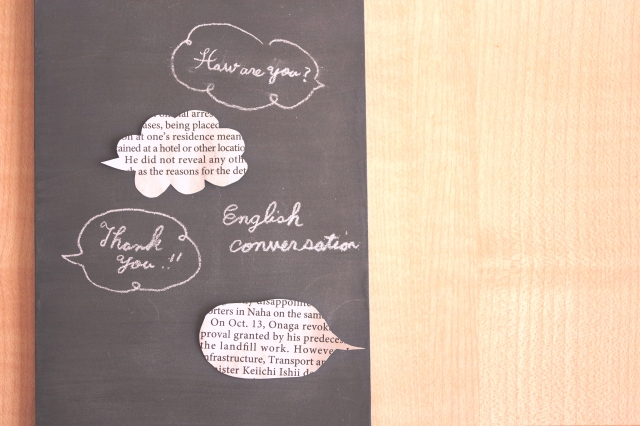 How are you?
al arres
ases, being placed
n at one's residence mean
ained at a hotel or other locatio
He did not reveal any oth
as the reasons for the det
English
conversation
Thank
you..!!
disappointe
orters in Naha on the sam
On Oct. 13, Onaga revok
proval granted by his predeces
the landfill work. Howeve
nfrastructure, Transport an
nister Keiichi Ishii de